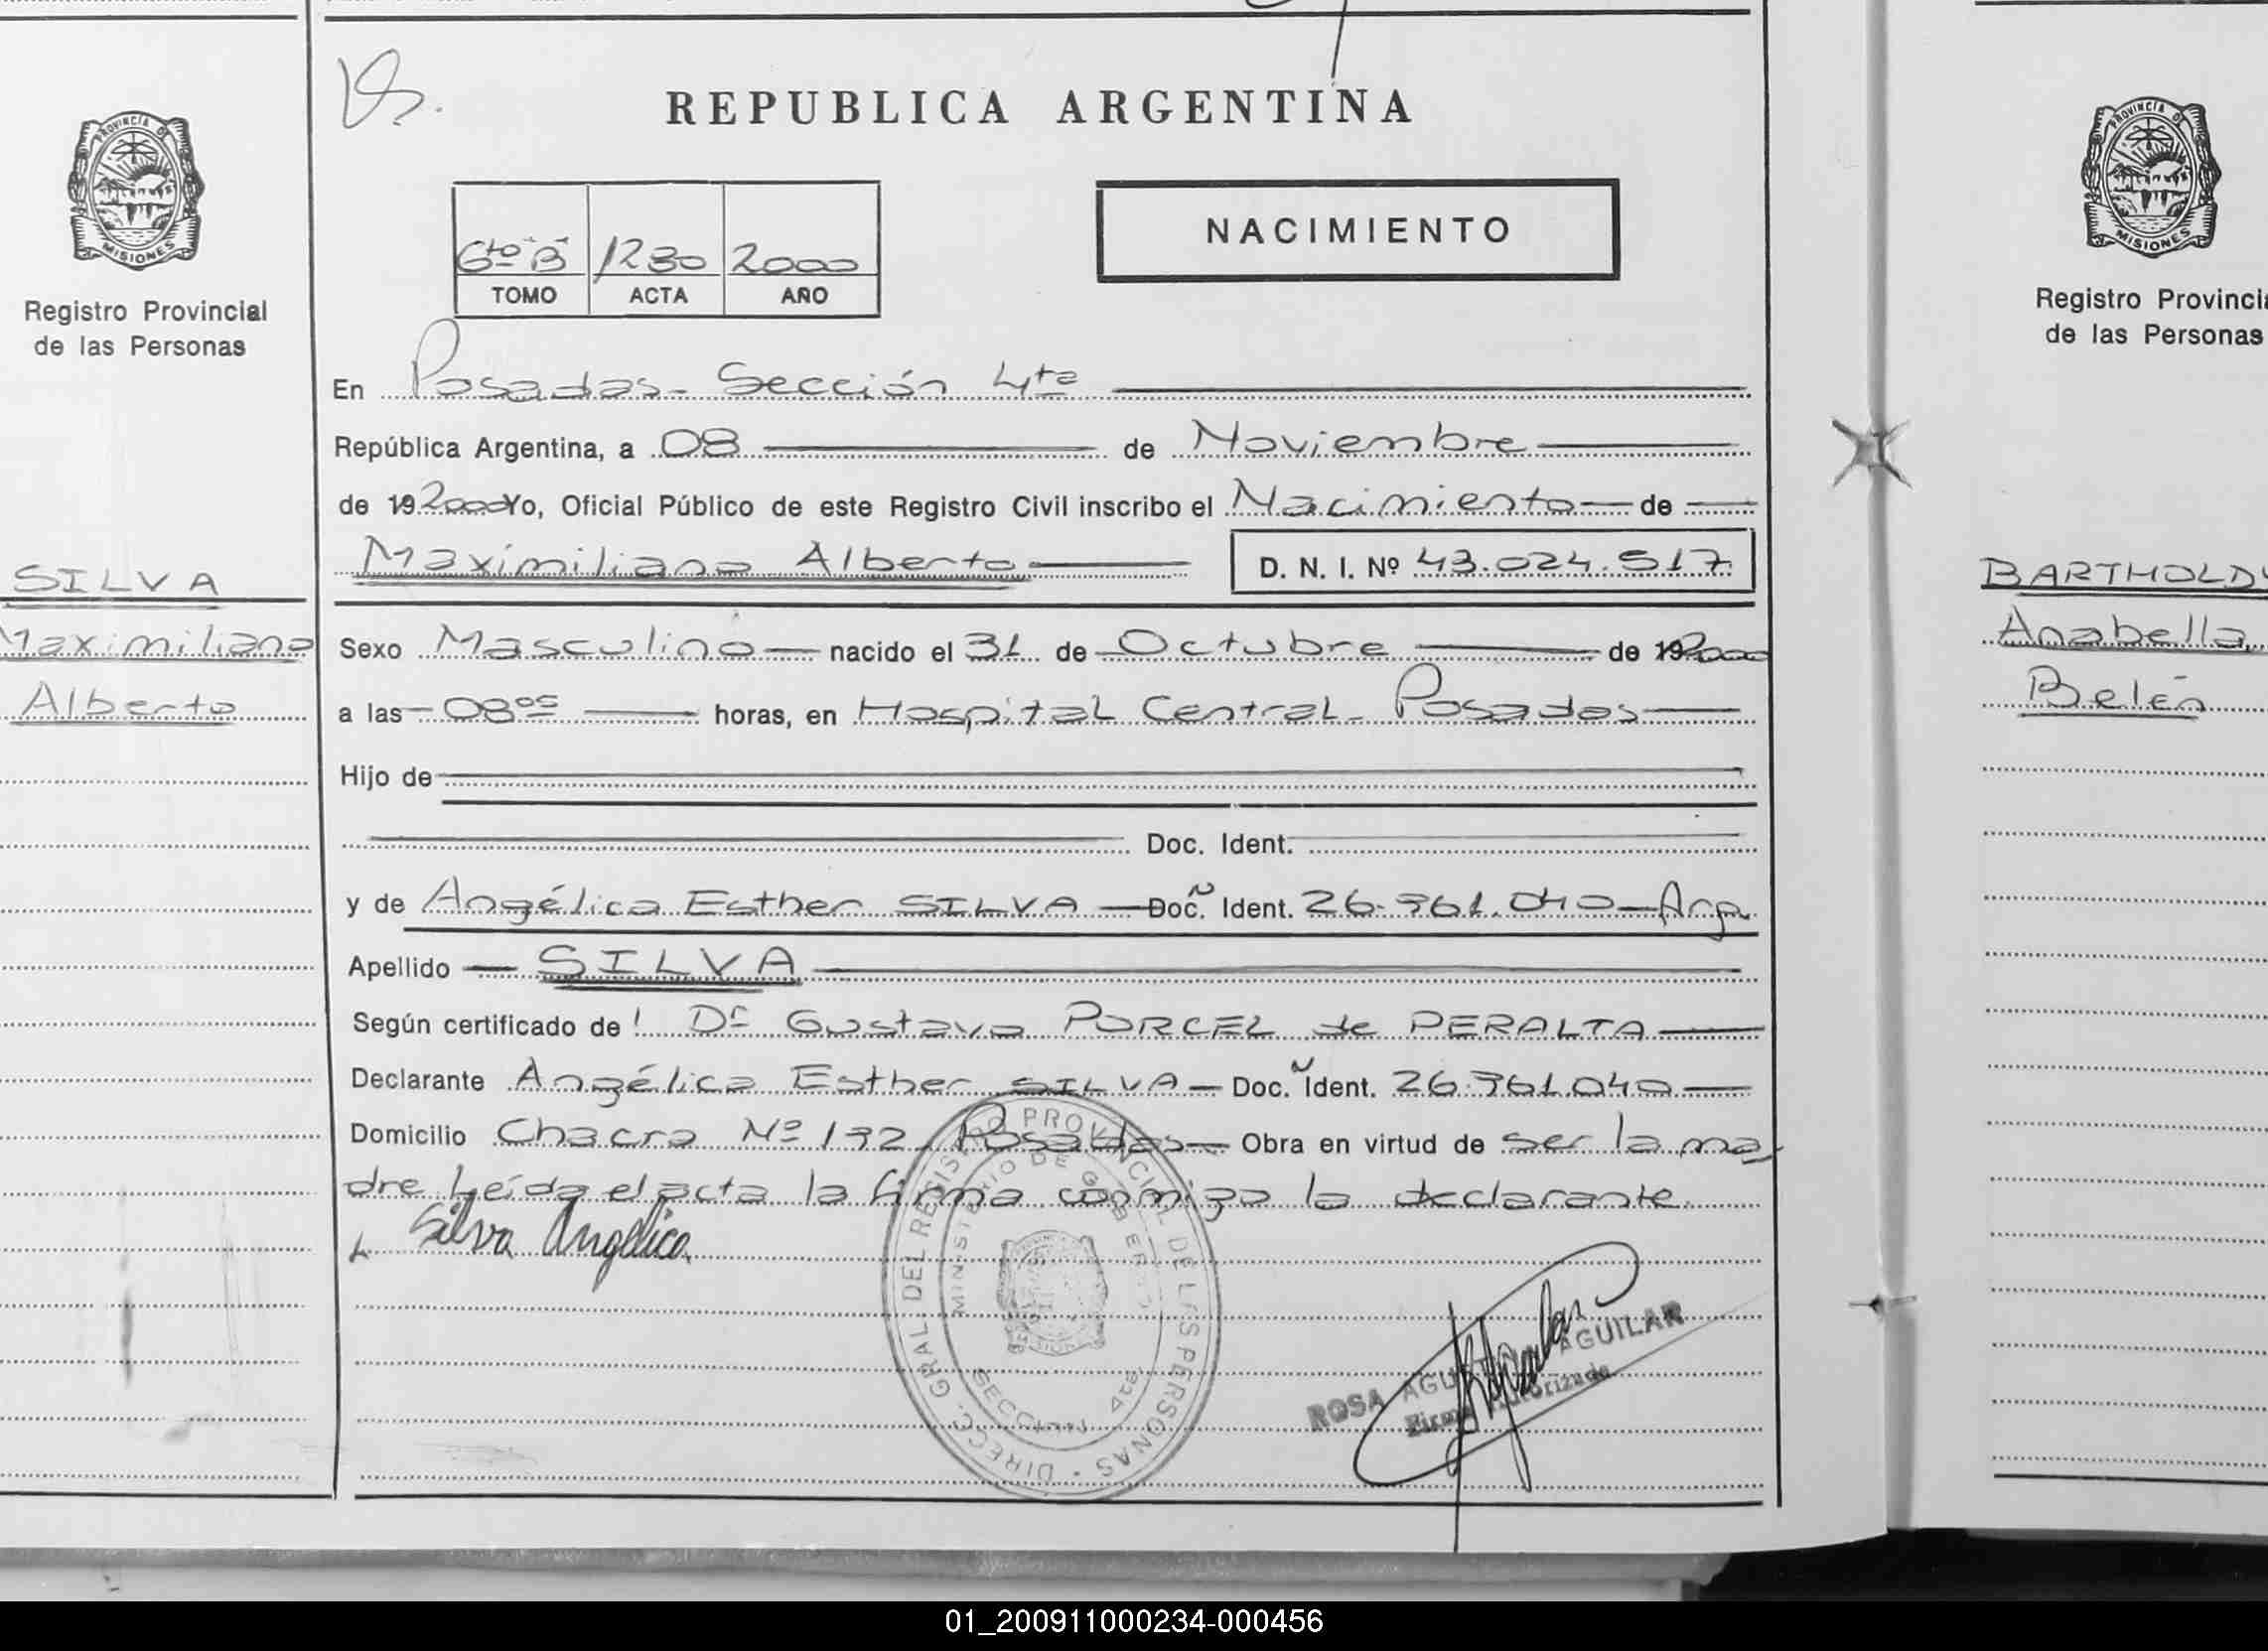 REPUBLICA ARGENTINA
PROVINCIA DE
MISIONES
Registro Provincial
de las Personas
SILVA
Maximiliano
Alberto
6to "B" 1230 2000
TOMO ACTA AÑO
NACIMIENTO
En Posadas - Sección 4ta
República Argentina, a 08 de Noviembre
de 192000 Yo, Oficial Público de este Registro Civil inscribo el Nacimiento de
Maximiliano Alberto D. N. I. Nº 43.024.517
Sexo Masculino nacido el 31 de Octubre de 192000
a las 08 05 horas, en Hospital Central - Posadas
Hijo de
Doc. Ident.
y de Angélica Esther SILVA Doc. Ident. 26.761.040 - Arg.
Apellido SILVA
Según certificado de: Dr Gustavo PORCEL de PERALTA
Declarante Angélica Esther SILVA - Doc. Ident. 26.761.040
Domicilio Chacra Nº 132 Posadas - Obra en virtud de ser la ma
dre Leída el acta la firma conmigo la declarante.
Silva Angélica
DIRECC. GRAL. DEL REGISTRO PROVINCIAL DE LAS PERSONAS
MINISTERIO DE GOBIERNO
SECCION
ROSA AGUILAR
Firma Autorizada
PROVINCIA DE
MISIONES
Registro Provincia
de las Personas
BARTHOLDY
Anabella
Belén
01_200911000234-000456